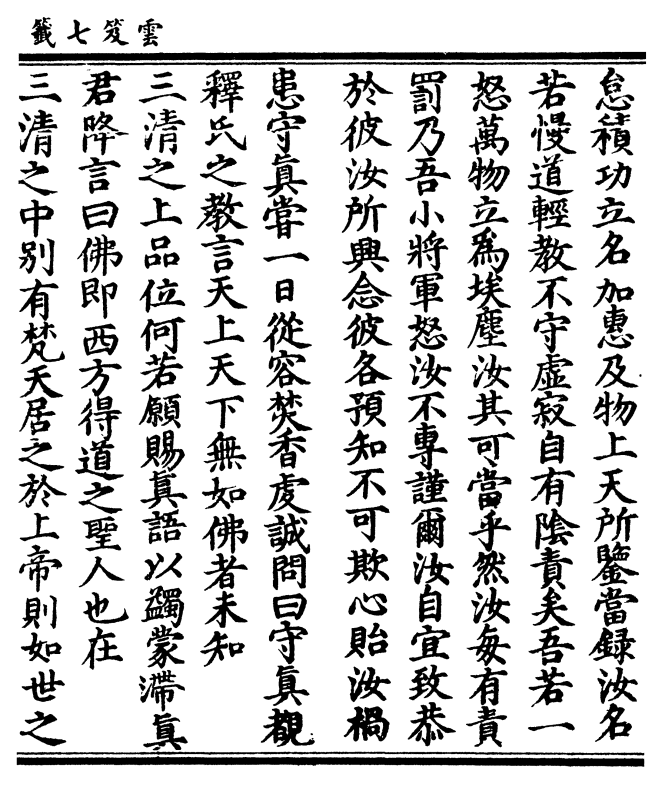 雲笈七籤
怠積功立名加惠及物上天所鑒當録汝名
若慢道輕教不守虛寂自有陰責矣吾若一
怒萬物立爲埃塵汝其可當乎然汝每有責
罰乃吾小將軍怒汝不專謹爾汝自宜致恭
於彼汝所興念彼各預知不可欺心貽汝禍
患守眞嘗一日從容焚香虔誠問曰守眞觀
釋氏之教言天上天下無如佛者未知
三清之上品位何若願賜眞語以蠲蒙滯眞
君降言曰佛即西方得道之聖人也在
三清之中别有梵天居之於上帝則如世之